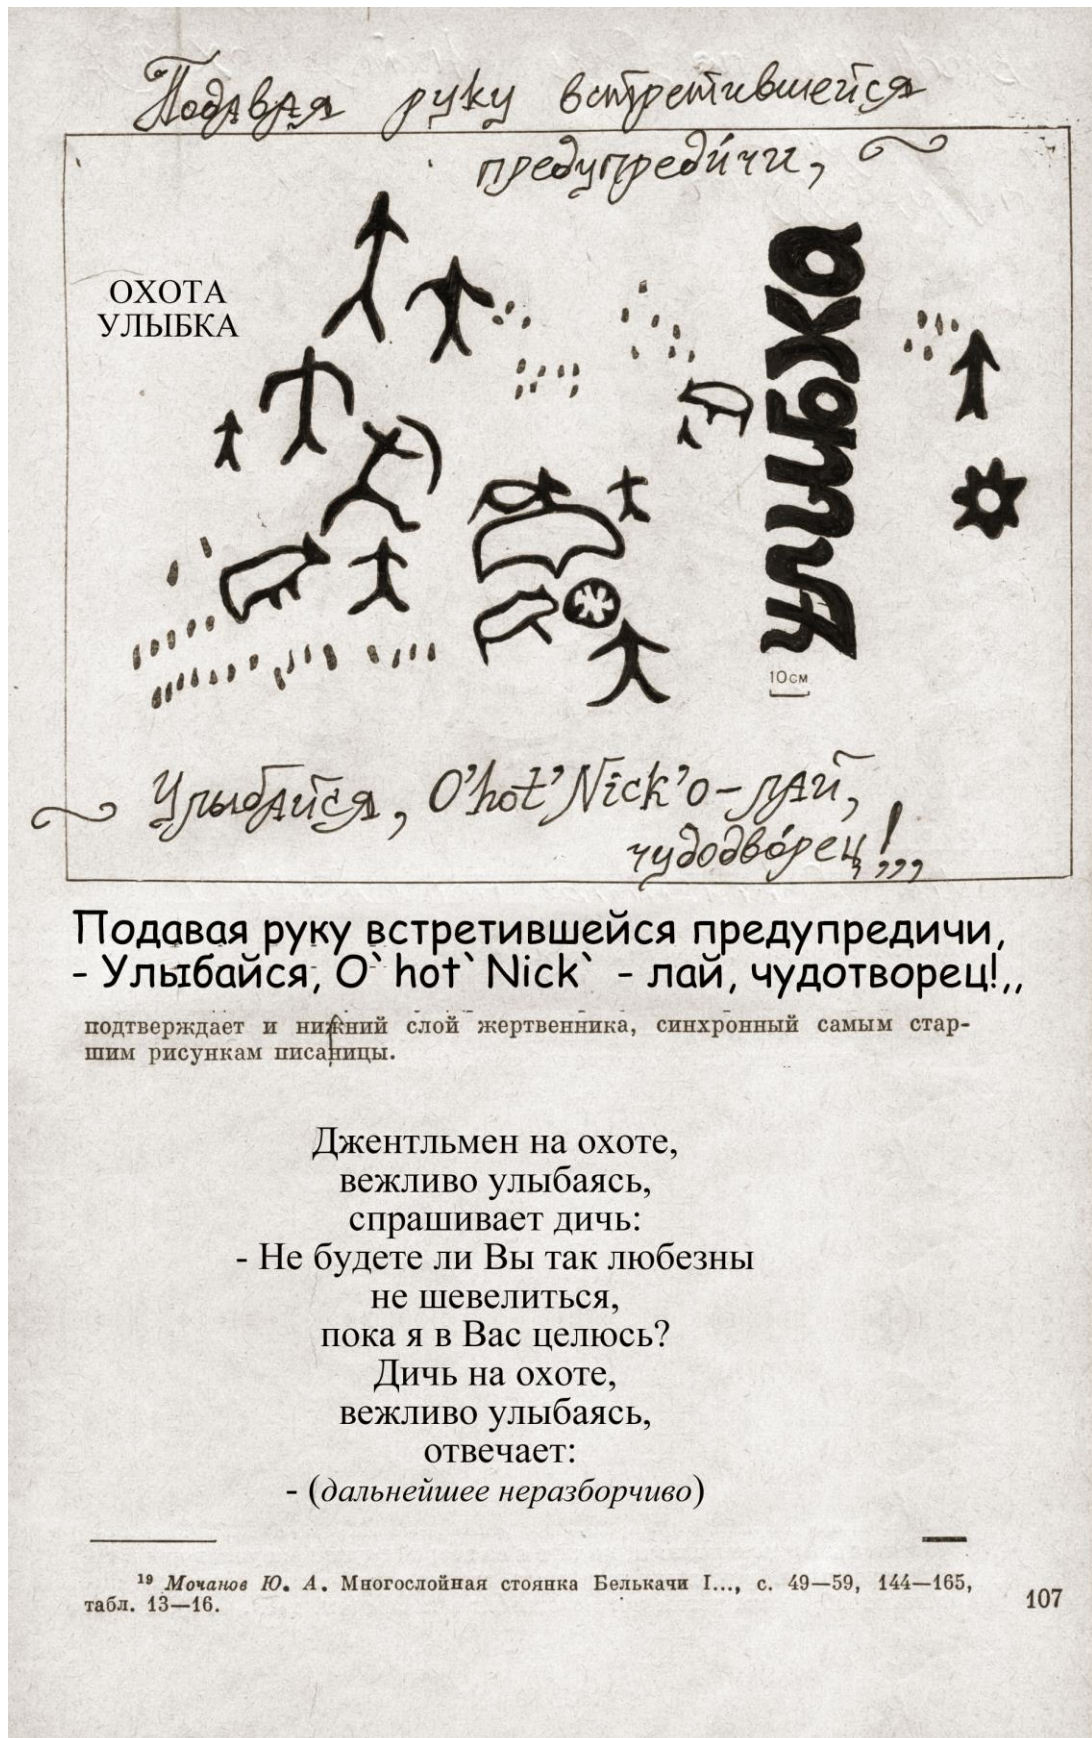 Подавая руку встретившейся
предупреди́чи,
ОХОТА
УЛЫБКА
улыбка
10см
Улыбайся, O'hot'Nick'о-лай,
чудодво́рец!,,,
Подавая руку встретившейся предупредичи,
- Улыбайся, O`hot`Nick` - лай, чудотворец!,,
подтверждает и нижний слой жертвенника, синхронный самым стар-
шим рисункам писаницы.
Джентльмен на охоте,
вежливо улыбаясь,
спрашивает дичь:
- Не будете ли Вы так любезны
не шевелиться,
пока я в Вас целюсь?
Дичь на охоте,
вежливо улыбаясь,
отвечает:
- (дальнейшее неразборчиво)
19 Мочанов Ю. А. Многослойная стоянка Белькачи I..., с. 49—59, 144—165,
табл. 13—16.
107